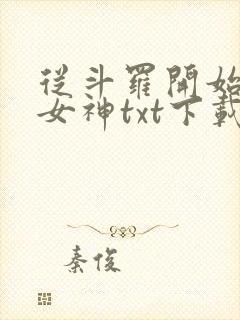 從斗羅開始
女神txt下載
秦俊